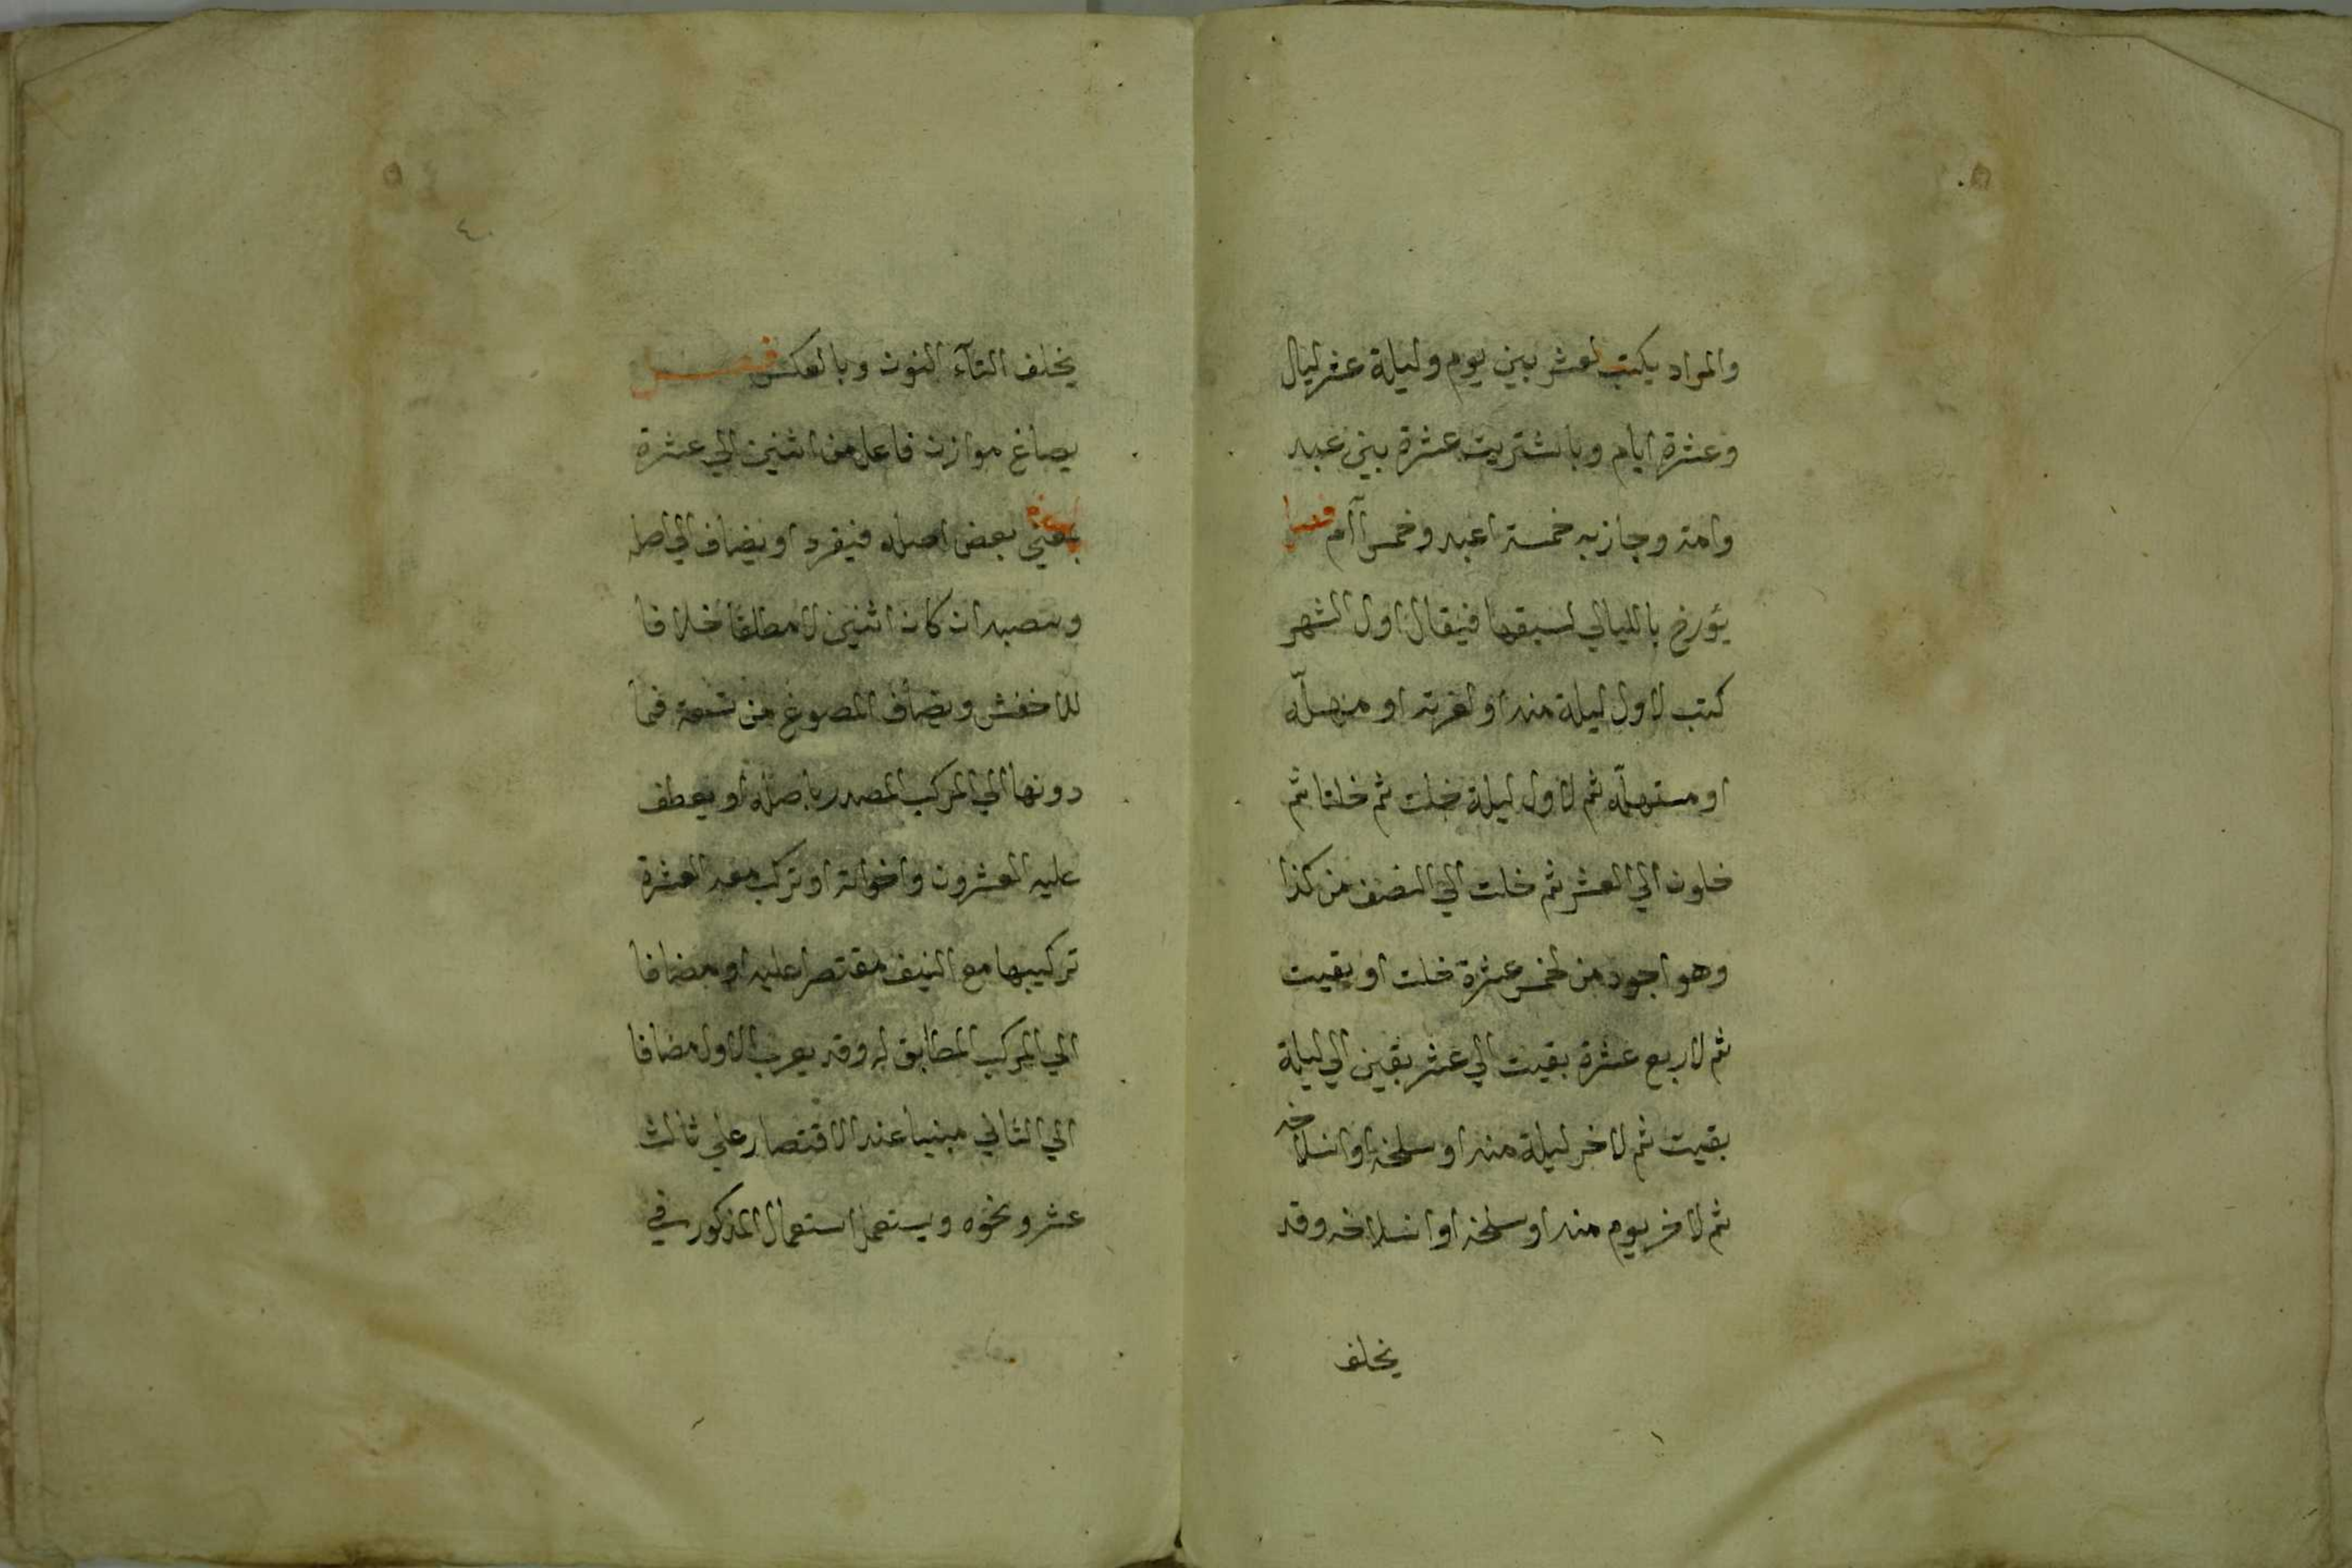 والمراد يكتب لعشر بين يوم وليلة عشر ليال
وعشرة ايام وباشتريت عشرة بين عبد
وامة وجاز به خمسة اعبد وخمس آام فصل
يؤرخ بالليالي لسبقها فيقال اول الشهر
كتب لاول ليلة منه او لغرته او مهلّه
او مستهلّه ثم لاول ليلة خلت ثم خلتا ثم
خلون الي العشر ثم خلت الي النصف من كذا
وهو اجود من لخمس عشرة خلت او بقيت
ثم لاربع عشرة بقيت الي عشر بقين الي ليلة
بقيت ثم لاخر ليلة منه او سلخه او انسلاخه
ثم لاخر يوم منه او سلخه او انسلاخه وقد
يخلف
يخلف التآء النون وبالعكس فصل
يصاغ موازن فاعل من اثنين الي عشرة
بمعني بعض اصله فيفرد او يضاف الي اصله
وينصبه ان كان اثنين لا مطلقا خلافا
للاخفش ويضاف المصوغ من تسعة فما
دونها الي المركب المصدر باصله او يعطف
عليه العشرون واخواته او تركب معه العشرة
تركيبها مع النيف مقتصرا عليه او مضافا
الي المركب المطابق له وقد يعرب الاول مضافا
الي الثاني مبنيا عند الاقتصار علي ثالث
عشر ونحوه ويستعمل استعمال المذكور في